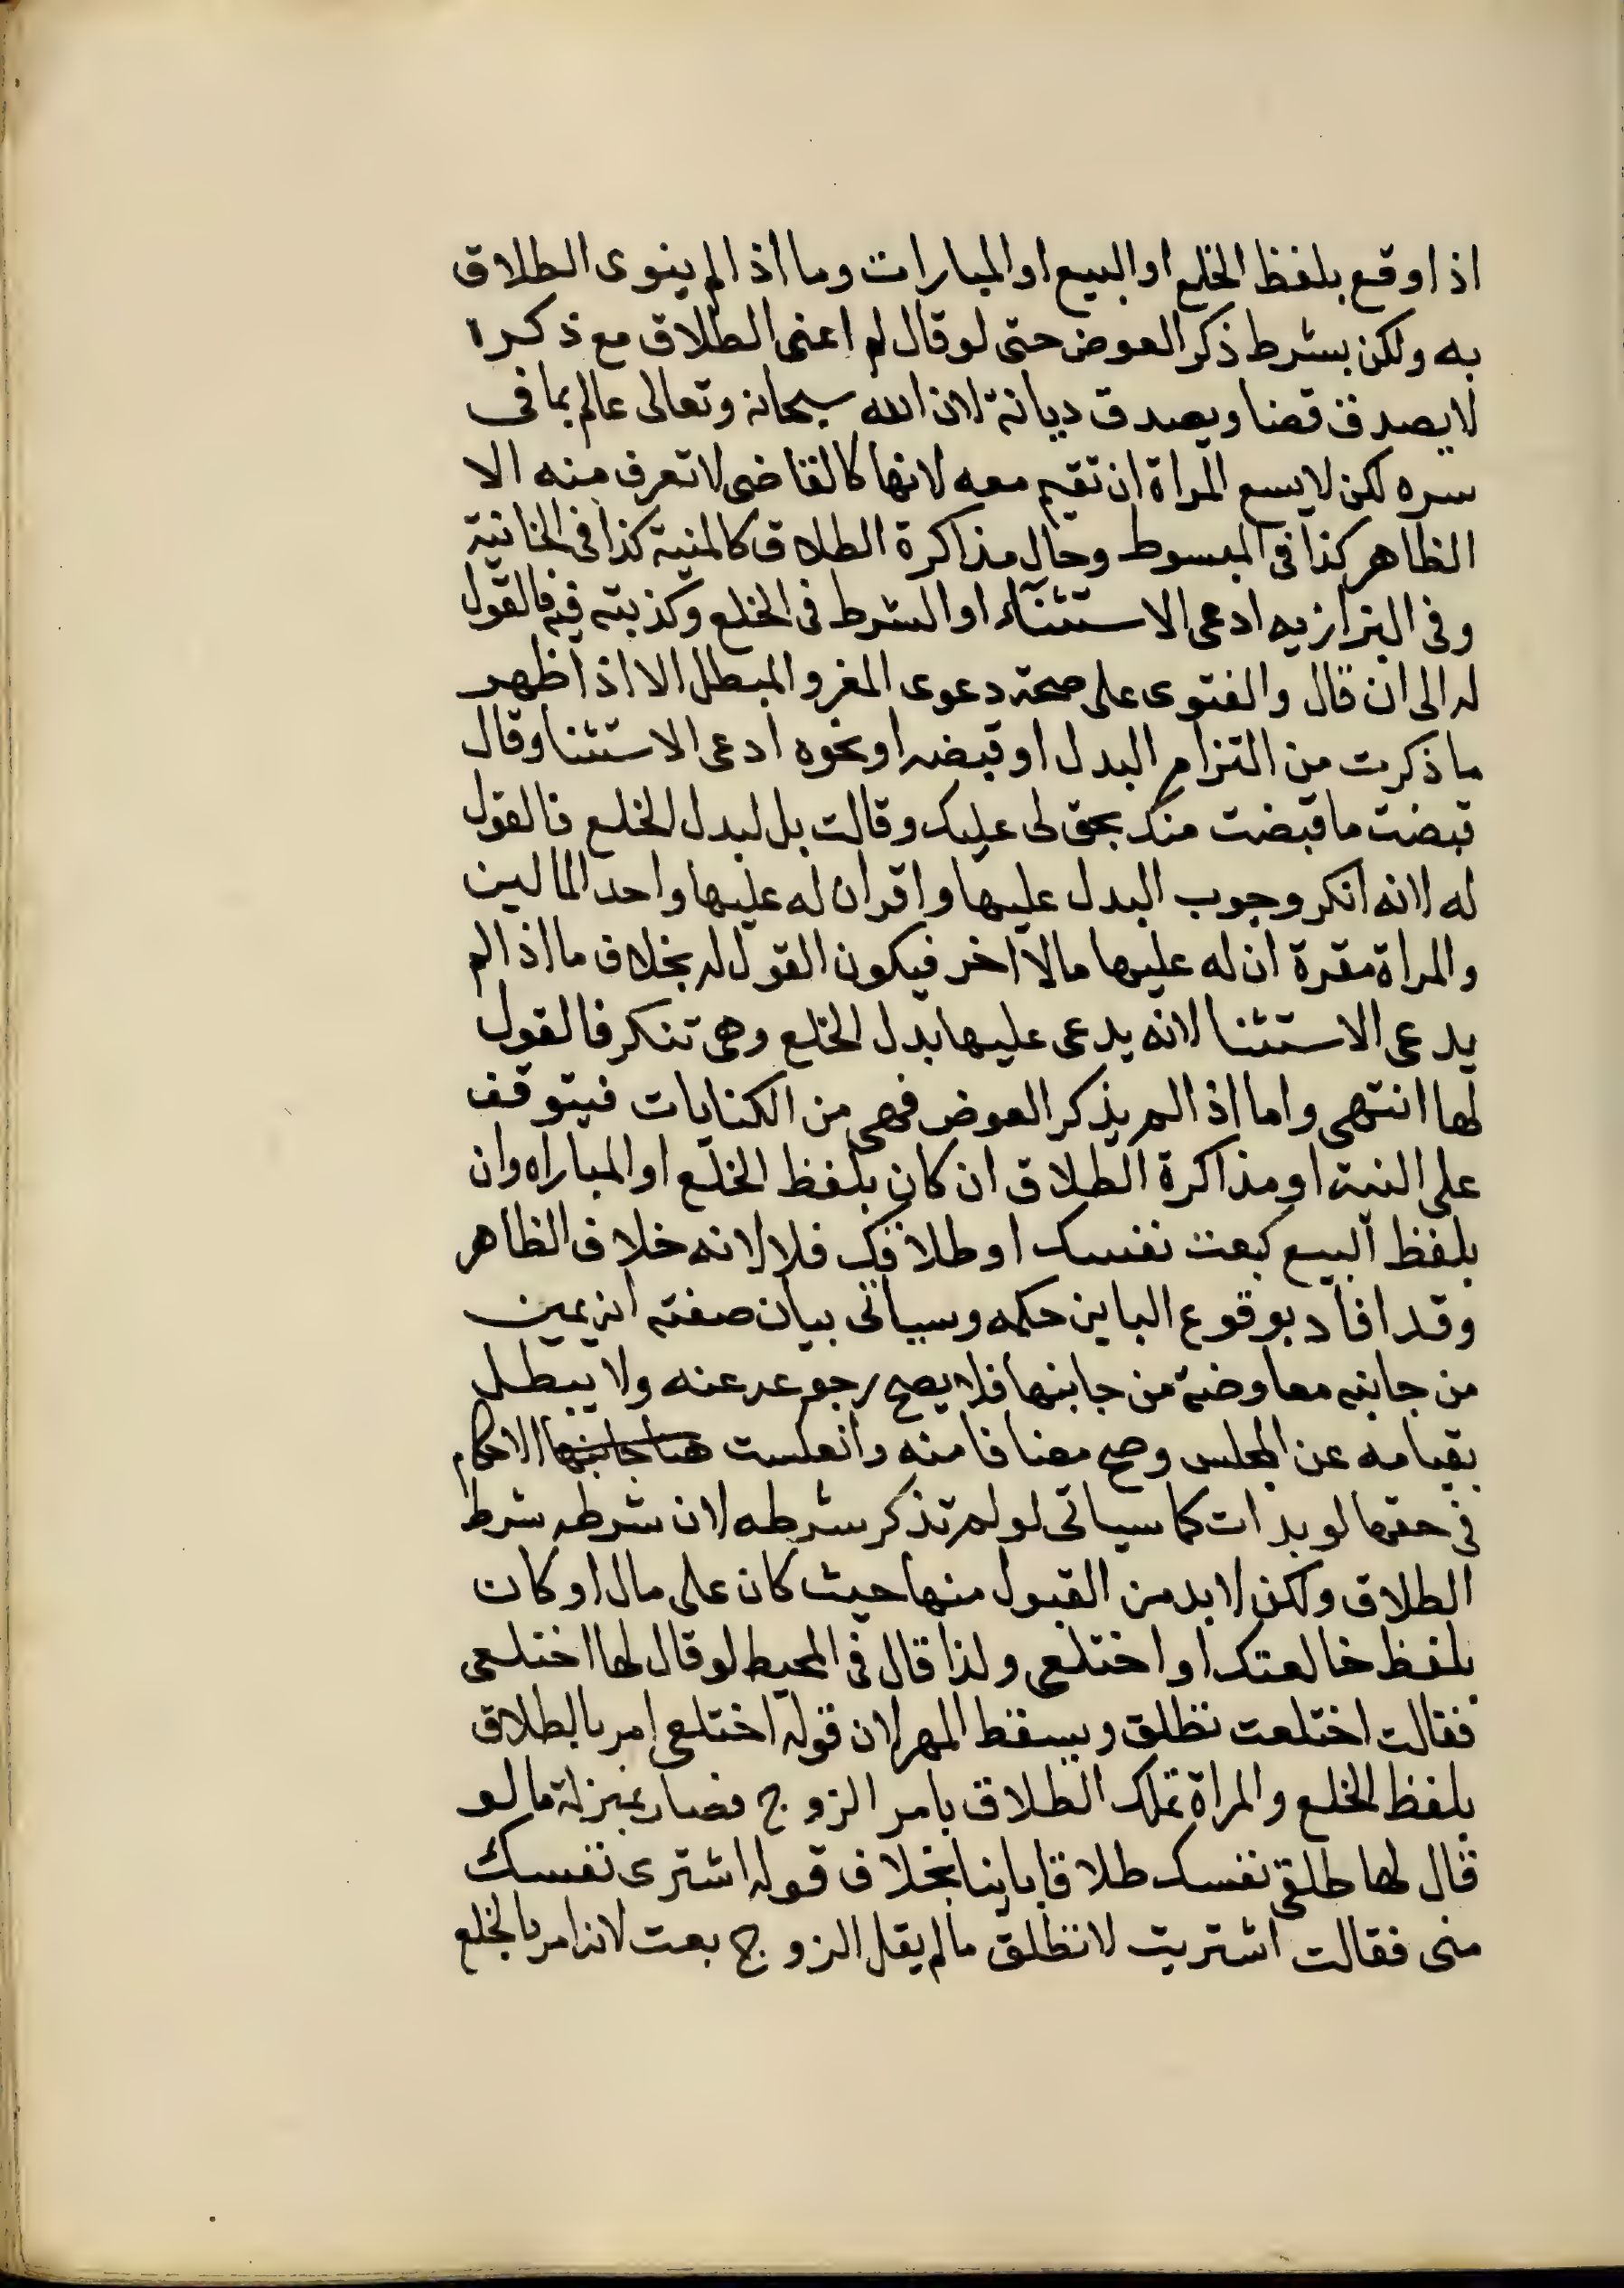 اذا وقع بلفظ الخلع او البيع او المبارات وما اذا لم ينوى الطلاق
به ولكن بشرط ذكر العوض حتى لو قال لم اعنى الطلاق مع ذكرا
لا يصدق قضا ويصدق ديانة لان الله سبحانه وتعالى عالم بما فى
سره لكن لا يسع المراة ان تقيم معه لانها كالقاضى لا تعرف منه الا
الظاهر كذا فى المبسوط وحال مذاكرة الطلاق كالمنية كذا فى الخانية
وفى البزازيه ادعى الاستثناء او الشرط فى الخلع وكذبته فيه فالقول
له الى ان قال والفتوى على صحة دعوى المغر والمبطل الا اذا ظهر
ما ذكرت من التزام البدل او قبضه او نحوه ادعى الاستثنا وقال
قبضت ما قبضت منك بحق لى عليك وقالت بل لبدل الخلع فالقول
له لانه انكر وجوب البدل عليها واقر ان له عليها واحد المالين
والمراة مقرة ان له عليها مالا اخر فيكون القول له بخلاف ما اذا لم
يدعى الاستثنا لانه يدعى عليها بدل الخلع وهى تنكر فالقول
لها انتهى واما اذا لم يذكر العوض فهى من الكنايات فيتوقف
على النية او مذاكرة الطلاق ان كان بلفظ الخلع او المباراه وان
بلفظ البيع كبعت نفسك او طلاقك فلا لانه خلاف الظاهر
وقد افاد بوقوع الباين حكمه وسياتى بيان صفته انه يمين
من جانبه معاوضة من جانبها فلا يصح رجوعه عنه ولا يبطل
بقيامه عن المجلس وصح مضافا منه وانعكست هنا جانبها الاحكام
فى حقها لو بدات كما سياتى لو لم تذكر شرطه لان شرطه شرط
الطلاق ولكن لا بد من القبول منها حيث كان على مال او كان
بلفظ خالعتك او اختلعى ولذا قال فى المحيط لو قال لها اختلعى
فقالت اختلعت تطلق ويسقط المهر لان قوله اختلعى امر بالطلاق
بلفظ الخلع والمراة تملك الطلاق بامر الزوج فصار بمنزلة ما لو
قال لها طلقى نفسك طلاقا باينا بخلاف قوله اشترى نفسك
منى فقالت اشتريت لا تطلق ما لم يقل الزوج بعت لانه امر بالخلع